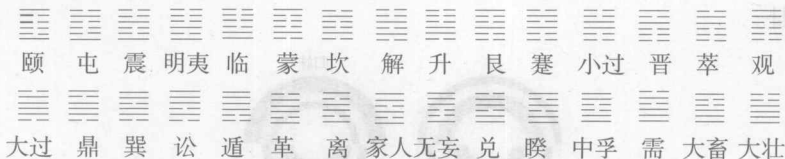 颐 屯 震 明夷 临 蒙 坎 解 升 艮 蹇 小过 晋 萃 观
大过 鼎 巽 讼 遁 革 离 家人 无妄 兑 睽 中孚 需 大畜 大壮